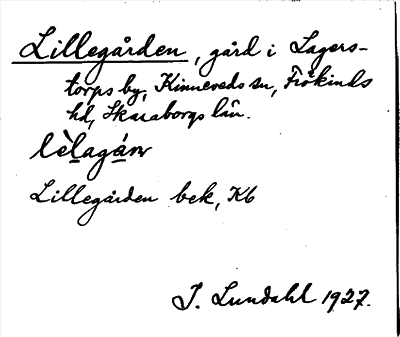 Lillegården, gård i Lagers-
torps by, Kinneveds sn, Frökinds
hd, Skaraborgs län.
Lillegården bek, Kb
I. Lundahl 1927.